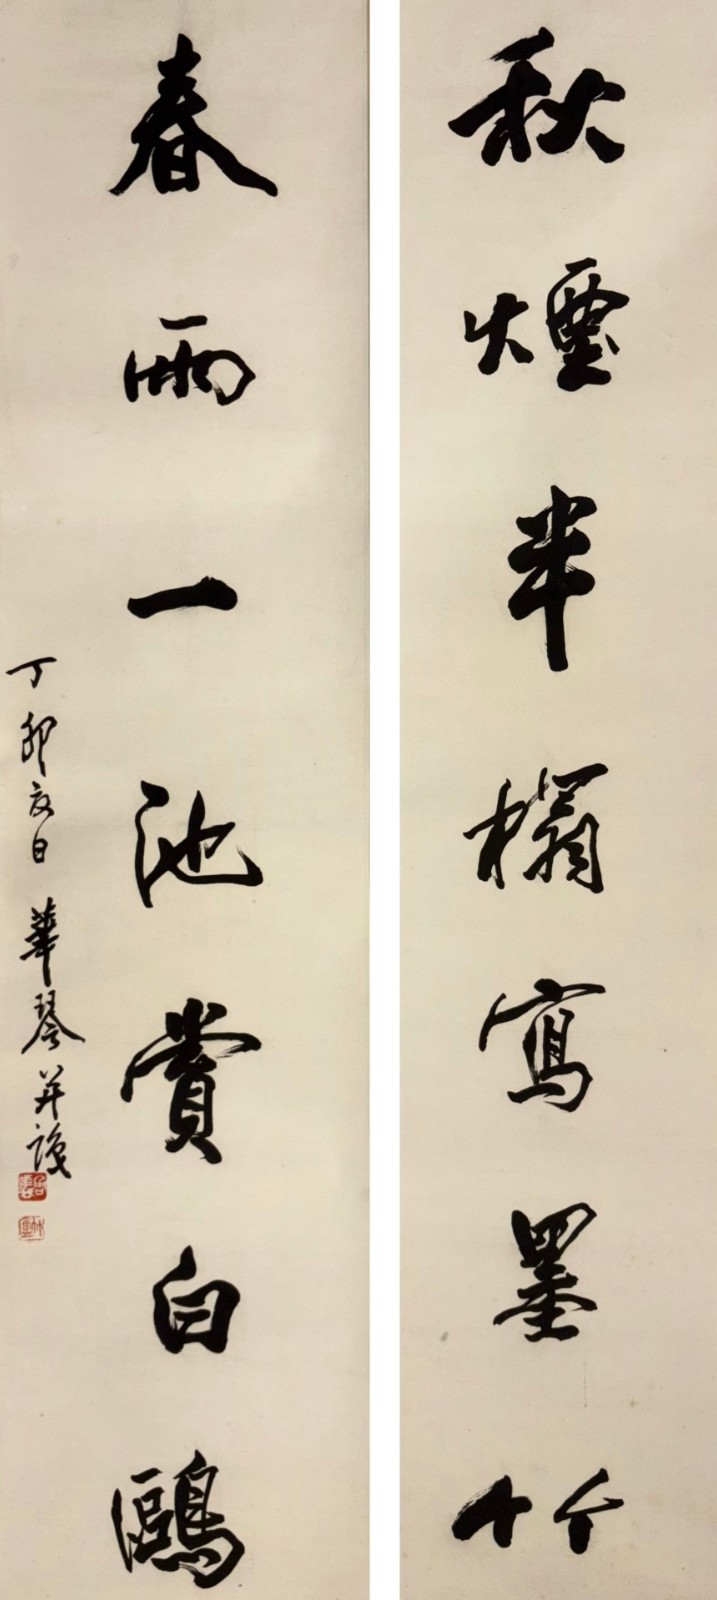 秋煙半榻寫墨竹
春雨一池賞白鷗
丁卯夜日華琴并識